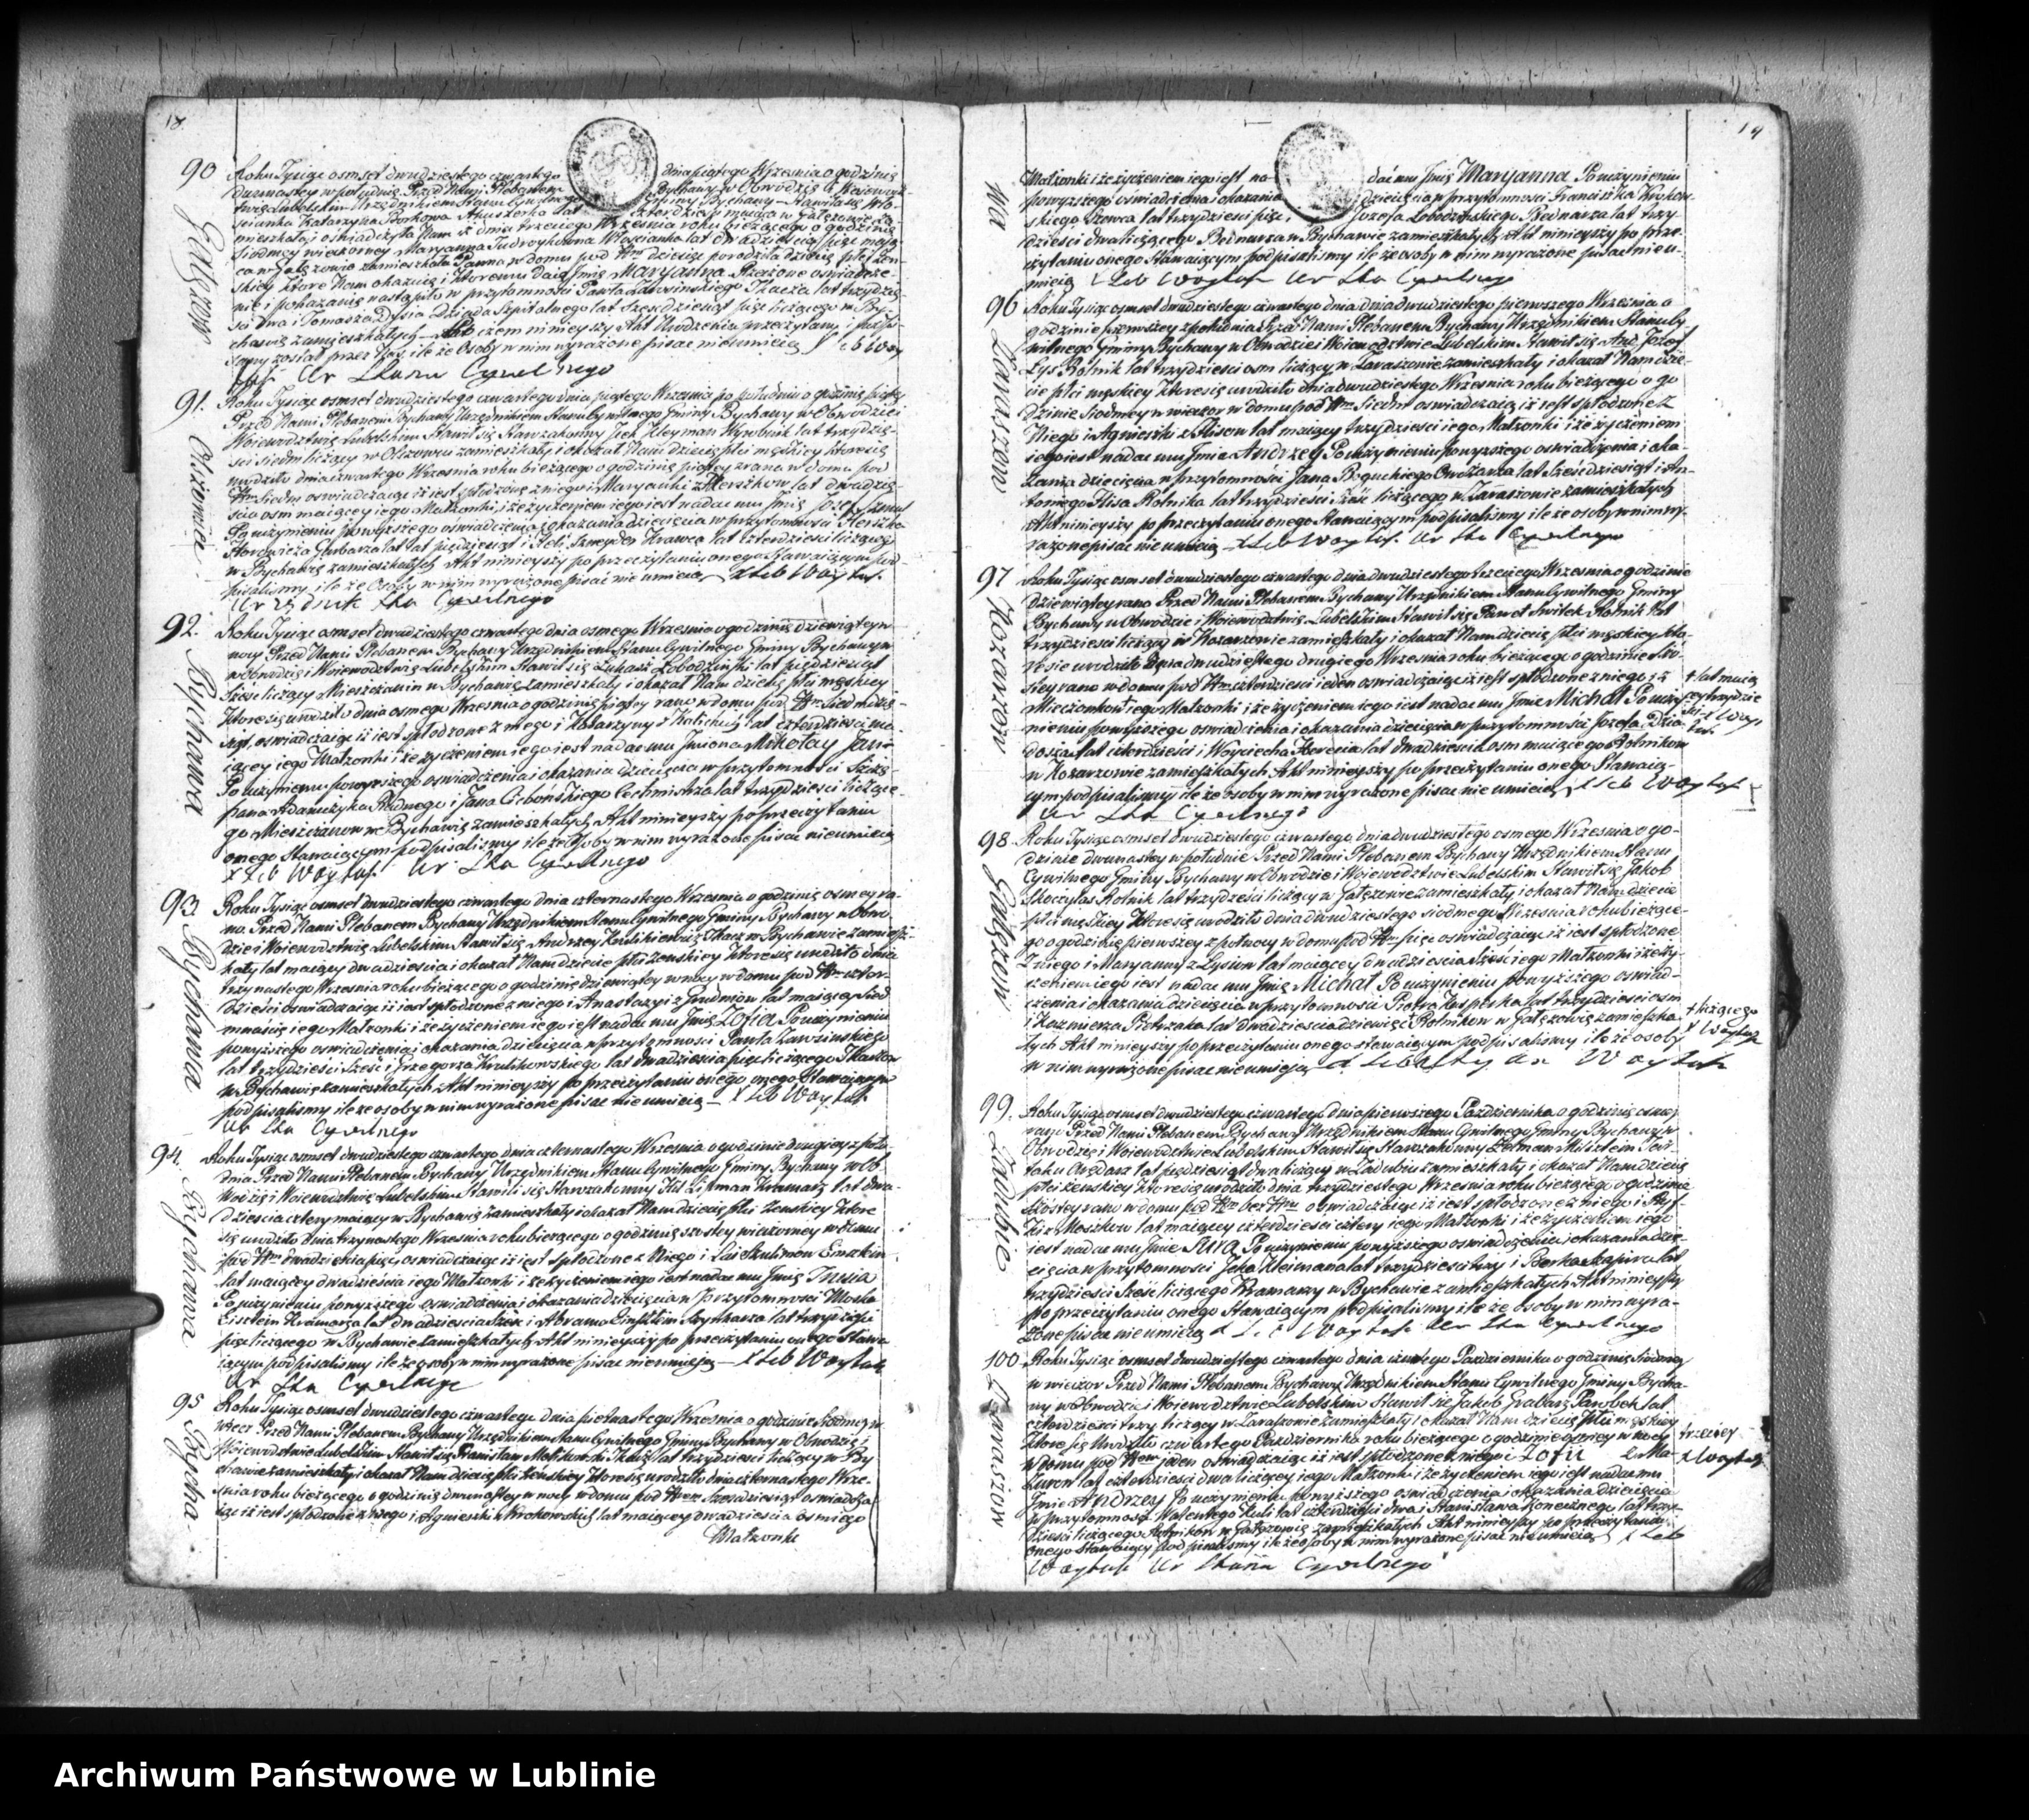 18.
90 Gałęzow
Roku Tysiąc osmset dwudziestego czwartego dnia piątego Września o godzinie
dwunastey w południe Przed Nami Plebanem Bychawy w Obwodzie i Wojewódz-
twie Lubelskim Urzędnikiem Stanu Cywilnego Gminy Bychawy Stawiła się Wło-
ścianka Katarzyna Borkowa Akuszerka lat czterdzieści maiąca w Gałęzowie za-
mieszkała i oświadczyła Nam iż dnia trzeciego Września roku bieżącego o godzinie
siodmey wieczorney Maryanna Włościanka lat dwadzieścia pięć maią-
ca w Gałęzowie zamieszkała Panna w domu pod Nrem dziesięć porodziła dziecię płci żeń-
skiey które Nam okazuie i któremu daie Jmię Maryanna
nie i pokazanie nastąpiło w przytomności Pawła Zawsinskiego Tkacza lat trzydzie-
ści dwa i Tomasza Dziada Szpitalnego lat sześćdziesiąt pięć liczącego w By-
chawie zamieszkałych czem ninieyszy Akt Urodzenia przeczytany i podpi-
sany został przez Nas ile że Osoby w nim wyrażone pisac nie umieią X Leb Woy
Ur Stanu Cywilnego
91. Olszowiec
Roku Tysiąc osmset dwudziestego czwartego dnia piątego Września po południu o godzinie piątey
Przed Nami Plebanem Bychawy Urzędnikiem Stanu Cywilnego Gminy Bychawy w Obwodzie i
Wojewodztwie Lubelskim Stawił się Starozakonny Jcek Kleyman Wyrobnik lat trzydzie-
ści siedm liczący w Olszowcu zamieszkały i okazał Nam dziecię płci męskiey które się
urodziło dnia czwartego Września roku bieżącego o godzinie piątey zrana w domu pod
Nrem siedm oswiadczaiąc iż iest spłodzone z niego i Maryanki z Herszkow lat dwadzie-
ścia osm maiącey iego Małżonki, i że życzeniem iego iest nadac mu Jmię Jozef Szmul
Po uczynieniu powyższego oswiadczenia i okazania dziecięcia w przytomności Herszka
Horowicza Garbarza lat pięćdziesiąt i Krawca lat czterdzieści liczącey
w Bychawie zamieszkałych Akt ninieyszy po przeczytaniu onego Stawaiącym pod-
pisalismy ile że Osoby w nim wyrażone pisac nie umieią X Leb Woytas
Urzędnik Sta Cywilnego
92. Bychawa
Roku Tysiąc osmset dwudziestego czwartego dnia osmego Września o godzinie dziewiątey w
nocy Przed Nami Plebanem Bychawy Urzędnikiem Stanu Cywilnego Gminy Bychawy w
Obwodzie i Wojewodztwie Lubelskim Stawił się Łukasz Łobodzinski lat pięćdziesiąt
sześć liczący Mieszczanin w Bychawie zamieszkały i okazał Nam dziecię płci męskiey
które się urodziło dnia osmego Września o godzinie piątey rano w domu pod Nrem siedmdzie-
siąt, oswiadczaiąc iż iest spłodzone z niego i Katarzyny z lat czterdzieści ma-
iącey iego Małżonki i że życzeniem iego iest nadac mu Jmiona Mikołay Jan
Po uczynieniu powyższego oswiadczenia i okazania dziecięcia w przytomności Szcze-
pana Adamczyka Radnego i Jana Cechmistrza lat trzydzieści liczące-
go Mieszczanow w Bychawie zamieszkałych Akt ninieyszy po przeczytaniu
onego Stawaiącym podpisalismy ile że Osoby w nim wyrażone pisac nie umieią
X Leb Woytas Ur Sta Cywilnego
93 Bychawa
Roku Tysiąc osmset dwudziestego czwartego dnia czternastego Września o godzinie osmey ra-
no Przed Nami Plebanem Bychawy Urzędnikiem Stanu Cywilnego Gminy Bychawy w Obwo-
dzie i Wojewodztwie Lubelskim Stawił się Andrzey Kulikiewicz Tkacz w Bychawie zamiesz-
kały lat maiący dwadzieścia i okazał Nam dziecię płci żenskiey które się urodziło dnia
trzynastego Września roku bieżącego o godzinie dziewiątey w nocy w domu pod Nrem czter-
dzieści oswiadczaiąc iż iest spłodzone z niego i Anastazyi z lat maiącey siedm-
naście iego Małżonki i że życzeniem iego iest nadac mu Jmię Zofia Po uczynieniu
powyższego oswiadczenia i okazania dziecięcia w przytomności Pawła Zawsinskiego
lat trzydzieści sześć i Grzegorza Krulikowskiego lat dwadzieścia pięć liczącego Tkaczow
w Bychawie zamieszkałych Akt ninieyszy po przeczytaniu onego Stawaiącym
podpisalismy ile że osoby w nim wyrażone pisac nie umieią X Leb Woytas
Ur Sta Cywilnego
94. Bychawa
Roku Tysiąc osmset dwudziestego czwartego dnia czternastego Września o godzinie drugiey z połu-
dnia Przed Nami Plebanem Bychawy Urzędnikiem Stanu Cywilnego Gminy Bychawy w Ob-
wodzie i Wojewodztwie Lubelskim Stawił się Starozakonny Jcek Lipman Kramarz lat dwa-
dzieścia cztery maiący w Bychawie zamieszkały i okazał Nam dziecię płci żenskiey które
się urodziło dnia trzynastego Września roku bieżącego o godzinie szostey wieczorney w domu
pod Nrem dwadzieścia pięć, oswiadczaiąc iż iest spłodzone z Niego i
lat maiącey dwadzieścia iego Małżonki i że życzeniem iego iest nadac mu Jmię
Po uczynieniu powyższego oswiadczenia i okazania dziecięcia w Przytomności Moska
Kramarza lat dwadzieścia sześć i Abrama Szynkarza lat trzydzieści
pięć liczącego w Bychawie zamieszkałych Akt ninieyszy po przeczytaniu onego Stawa-
iącym podpisalismy ile że osoby w nim wyrażone pisac nie umieią X Leb Woytas
Ur Sta Cywilnego
95 Bycha-
Roku Tysiąc osmset dwudziestego czwartego dnia piętnastego Września o godzinie siodmey w
wiecz Przed Nami Plebanem Bychawy Urzędnikiem Stanu Cywilnego Gminy Bychawy w Obwodzie i
Wojewodztwie Lubelskim Stawił się Stanisław Tkacz lat trzydzieści liczący w By-
chawie zamieszkały i okazał Nam dziecię płci żeńskiey które się urodziło dnia czternastego Wrze-
śnia roku bieżącego o godzinie dwunastey w nocy w domu pod Nrem sześćdziesiąt oswiadcza-
iąc iż iest spłodzone z niego i Agnieszki z Krakowskich lat maiącey dwadzieścia osm iego
Małżonki
19
wa
Małżonki i że życzeniem iego iest nadać mu Jmię Maryanna Po uczynieniu
powyższego oswiadczenia i okazania dziecięcia w przytomności Franciszka Krukow-
skiego Szewca lat trzydzieści pięć, Jozefa Łobodzinskiego Bednarza lat trzy-
dzieści dwa liczącego w Bychawie zamieszkałych Akt ninieyszy po prze-
czytaniu onego Stawaiącym podpisalismy ile że osoby w nim wyrażone pisać nieu-
mieią X Leb Woytas Ur Sta Cywilnego
96 Zaraszow
Roku Tysiąc osmset dwudziestego czwartego dnia dwudziestego pierwszego Września o
godzinie pierwszey z południa Przed Nami Plebanem Bychawy Urzędnikiem Stanu Cy-
wilnego Gminy Bychawy w Obwodzie i Wojewodztwie Lubelskim Stawił się Jozef
Łys Rolnik lat trzydzieści osm liczący w Zaraszowie zamieszkały i okazał Nam dzie-
cię płci męskiey które się urodziło dnia dwudziestego Września roku bieżącego o go-
dzinie siodmey w wieczor w domu pod Nrem siedm oswiadczaiąc iż iest spłodzone z
Niego i Agnieszki z Flisow lat maiącey trzydzieści iego Małżonki i że życzeniem
iego iest nadac mu Jmie Andrzey Po uczynieniu powyższego oswiadczenia i oka-
zania dziecięcia w przytomności Jana Boguckiego Owczarza lat sześćdziesiąt i An-
toniego Flisa Rolnika lat trzydzieści sześć liczącego w Zaraszowie zamieszkałych
Akt ninieyszy po przeczytaniu onego Stawaiącym podpisalismy ile że osoby w nim wy-
rażone pisac nie umieią X Leb Woytas Ur Sta Cywilnego
97 Kozarzow
Roku Tysiąc osmset dwudziestego czwartego dnia dwudziestego trzeciego Września o godzinie
dziewiątey rano Przed Nami Plebanem Bychawy Urzędnikiem Stanu Cywilnego Gminy
Bychawy w Obwodzie i Wojewodztwie Lubelskim Stawił się Paweł Świtek Rolnik lat
trzydzieści liczący w Kozarzowie zamieszkały i okazał Nam dziecię płci męskiey kto-
re się urodziło dnia dwudziestego drugiego Września roku bieżącego o godzinie
rano w domu pod Nrem czterdzieści ieden oswiadczaiąc iż iest spłodzone z niego i z
Mieczonkow iego Małżonki i że życzeniem iego iest nadac mu Jmie Michał Po uczy-
nieniu powyższego oswiadczenia i okazania dziecięcia w przytomności Jozefa Dzia-
dosza lat czterdzieści i Woyciecha lat dwadzieścia osm maiącego Rolnikow
w Kozarzowie zamieszkałych Akt ninieyszy po przeczytaniu onego Stawaią-
cym podpisalismy ile że osoby w nim wyrażone pisac nie umieią X Leb Woytas
Ur Sta Cywilnego
+ lat maią
cey trzydzie
ści X Woy
tas
98 Gałęzow
Roku Tysiąc osmset dwudziestego czwartego dnia dwudziestego osmego Września o go-
dzinie dwunastey w południe Przed Nami Plebanem Bychawy Urzędnikiem Stanu
Cywilnego Gminy Bychawy w Obwodzie i Wojewodztwie Lubelskim Stawił się Jakob
Skoczylas Rolnik lat trzydzieści liczący w Gałęzowie zamieszkały i okazał Nam dziecie
płci męskiey które się urodziło dnia dwudziestego siodmego Września roku bieżące-
go o godzinie pierwszey z połnocy w domu pod Nrem pięć oswiadczaiąc iż iest spłodzone
z niego i Maryanny z Łysiow lat maiącey dwadzieścia sześć iego Małżonki i że ży-
czeniem iego iest nadac mu Jmię Michał Po uczynieniu powyższego oswiad-
czenia i okazania dziecięcia w przytomności Piotra Kasperka lat trzydzieści osm
i Kazmierza Pietrzaka lat dwadzieścia dziewięć Rolnikow w Gałęzowie zamieszka-
łych Akt ninieyszy po przeczytaniu onego stawaiącym podpisalismy ile że osoby
w nim wyrażone pisac nie umieią
+ liczącego
X Woytas
99. Zadubie
Roku Tysiąc osmset dwudziestego czwartego dnia pierwszego Października o godzinie osmey
rano Przed Nami Plebanem Bychawy Urzędnikiem Stanu Cywilnego Gminy Bychawy w
Obwodzie i Wojewodztwie Lubelskim Stawił się Starozakonny
Arędarz lat pięćdziesiąt dwa liczący w Zadubiu zamieszkały i okazał Nam dziecię
płci żenskiey które się urodziło dnia trzydziestego Września roku bieżącego o godzinie
szóstey rano w domu pod Nrem bez Nru oswiadczaiąc iż iest spłodzone z niego i
z Moszkow lat maiącey czterdzieści cztery iego Małżonki i że życzeniem iego
iest nadac mu Jmie Sura Po uczynieniu powyższego oswiadczenia i okazania dzie-
cięcia w przytomności Jcka Kleimana lat trzydzieści trzy i Berka Szapiro lat
trzydzieści sześć liczącego Kramarzy w Bychawie zamieszkałych Akt ninieyszy
po przeczytaniu onego Stawaiącym podpisalismy ile że osoby w nim wyra-
żone pisac nie umieią X Leb Woytas Ur Sta Cywilnego
100 Zaraszow
Roku Tysiąc osmset dwudziestego czwartego dnia czwartego Października o godzinie siodmey
w wieczor Przed Nami Plebanem Bychawy Urzędnikiem Stanu Cywilnego Gminy Bycha-
wy w Obwodzie i Wojewodztwie Lubelskim Stawił się Jakób Grabarz Parobek lat
czterdzieści trzy liczący w Zaraszowie zamieszkały i okazał Nam dziecię płci męskiey
które się urodziło czwartego Października roku bieżącego o godzinie w nocy
w domu pod Nrem ieden oswiadczaiąc iż iest spłodzone z niego i Zofii z Ma-
zurow lat czterdzieści dwa liczącey iego Małżonki i że życzeniem iego iest nadac mu
Jmie Andrzey Po uczynieniu powyższego oswiadczenia i okazania dziecięcia
w przytomności Walentego Kuli lat czterdzieści dwa i Stanisława Koniecznego lat trzy-
dzieści liczącego Rolnikow w Gałęzowie zamieszkałych Akt ninieyszy po przeczytaniu
onego Stawaiący podpisalismy ile że osoby w nim wyrażone pisac nie umieią X Leb
Woytas Ur Stanu Cywilnego
trzeciey
X Woytas
Archiwum Państwowe w Lublinie